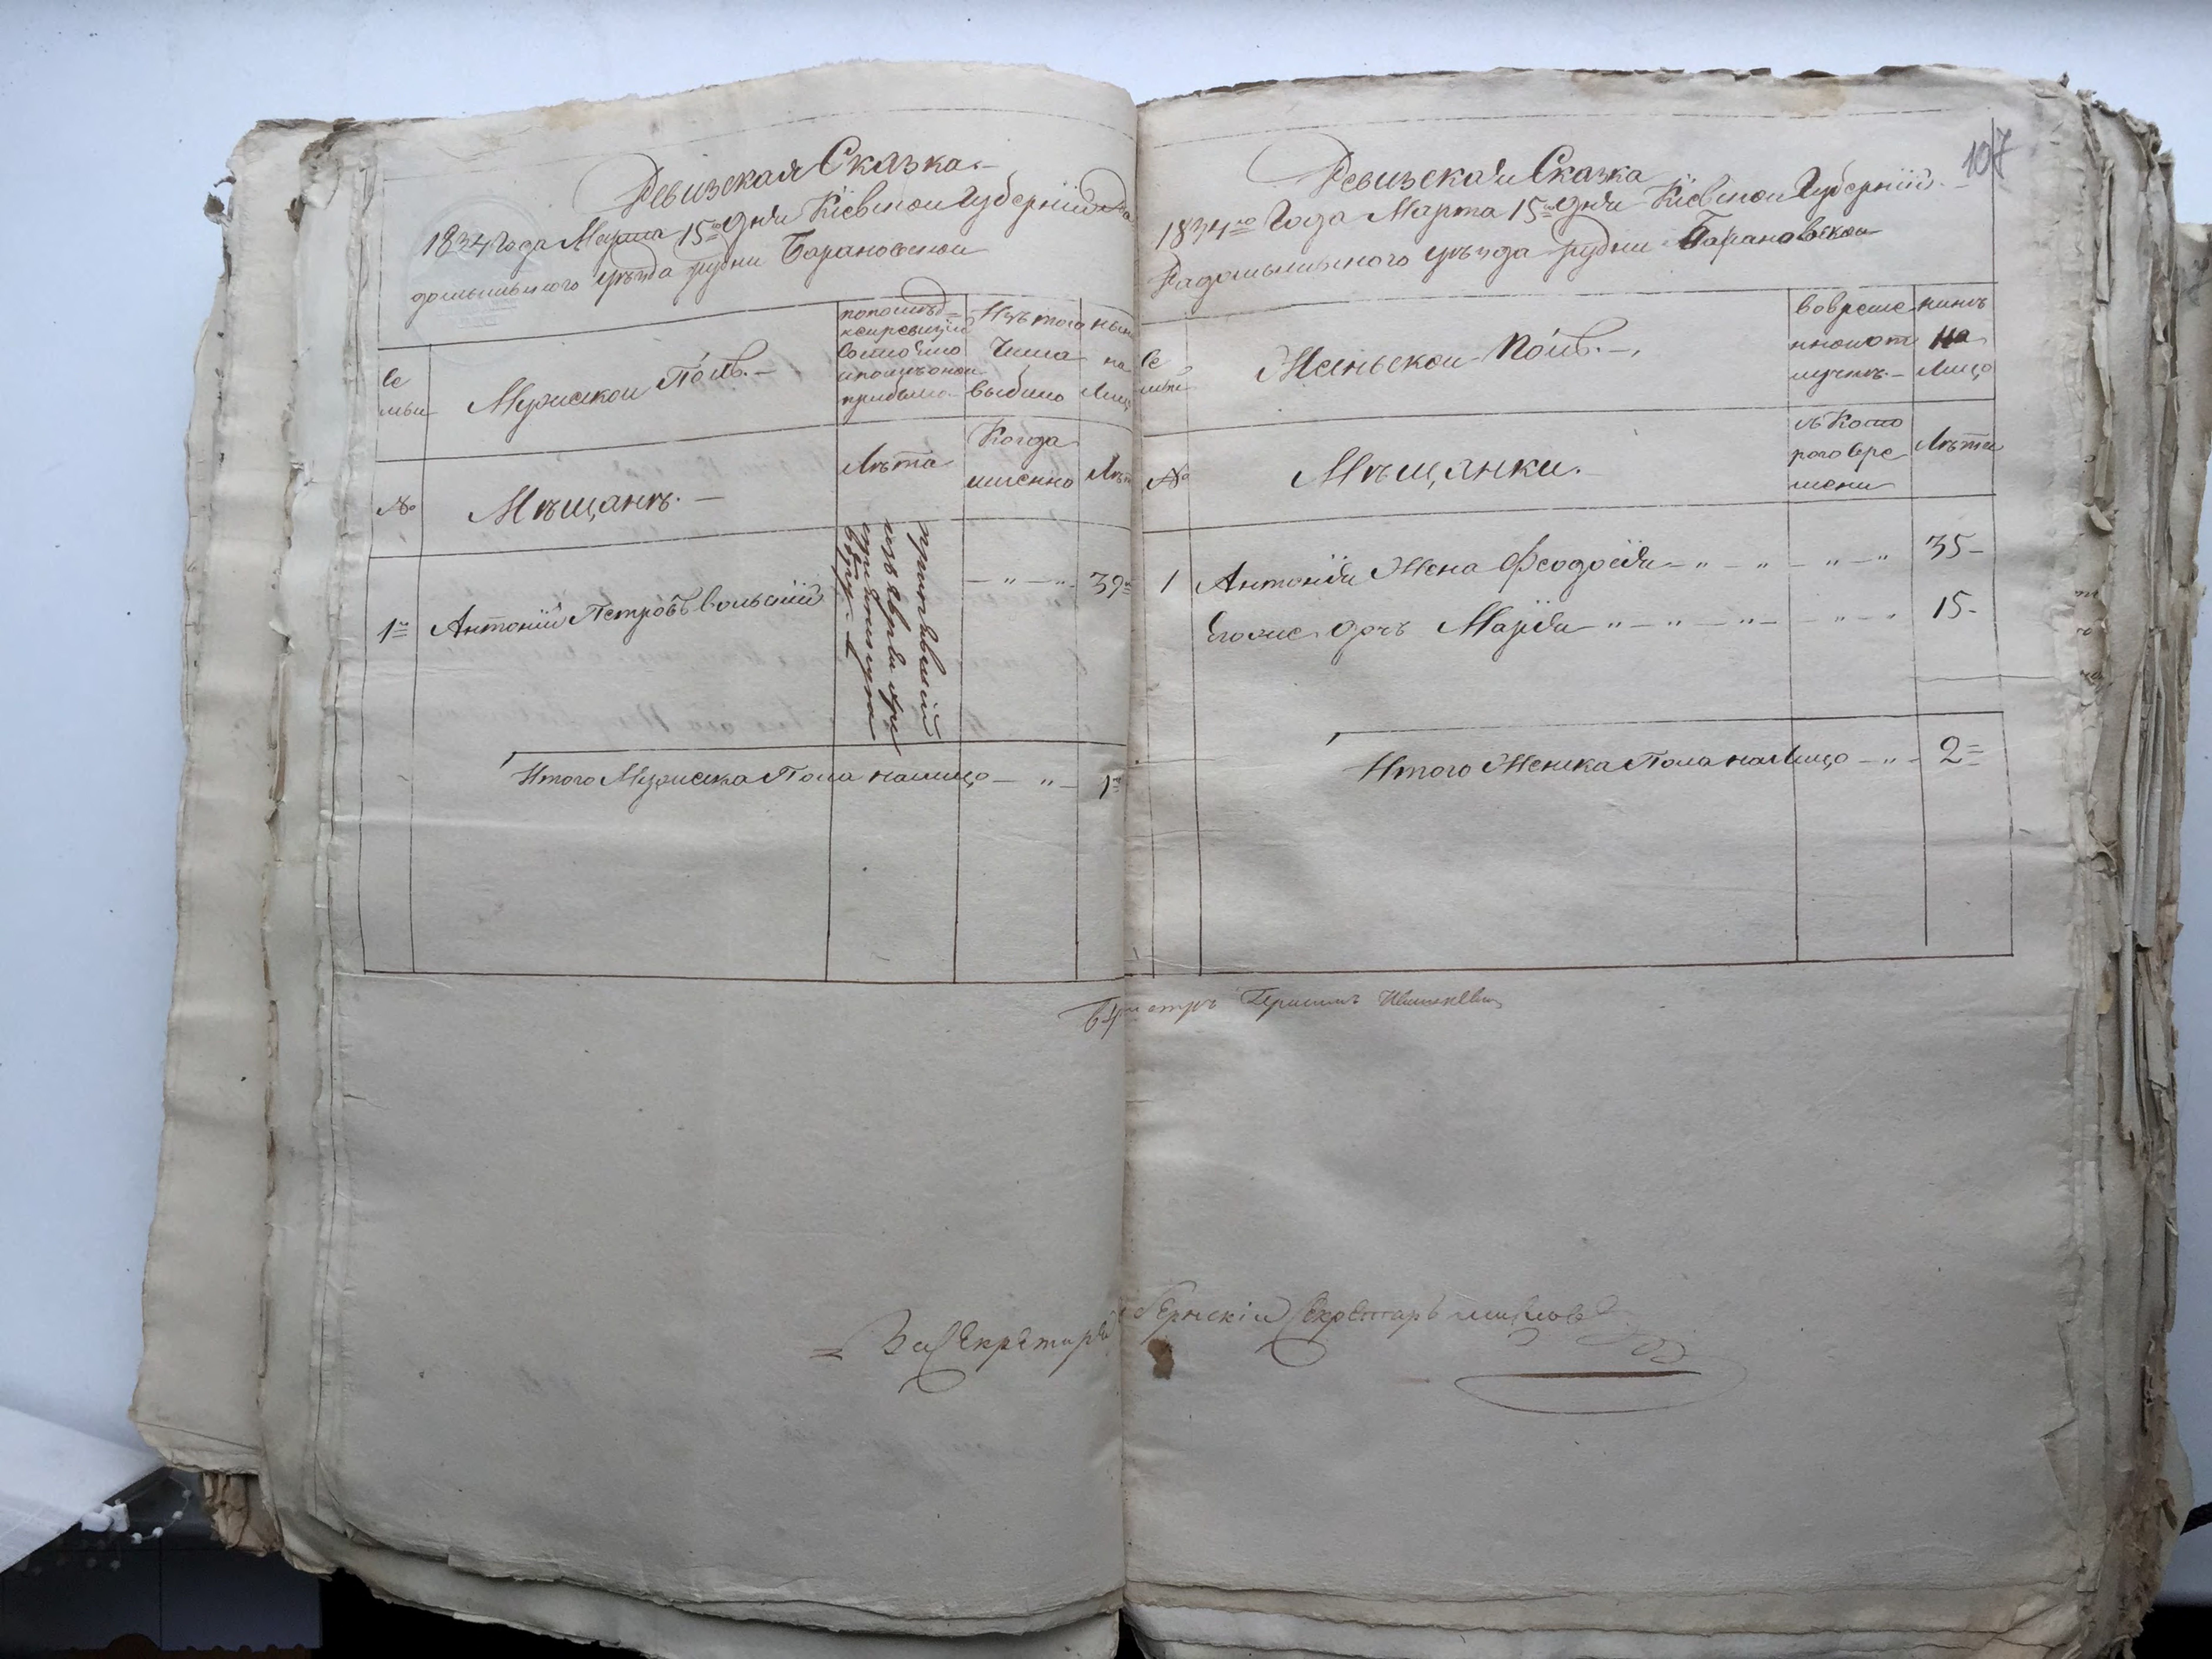 Ревизская Сказка. —
1834 Года Марта 15го дня Кіевской Губерніи Ра
домысльского уѣзда рудни Барановской
Се
мьи
Мужской Полъ. —
по послѣд=
ней ревизіи
состояло
и послѣ оной
прибыло
Изъ того
Числа
выбыло
ныне
на
Лицо
№
Мѣщанѣ. —
Лѣта
Когда
именно
Лѣт
1=
Антоній Петровъ Вольскій
— „ — „ —
39=
Итого Мужска Пола налицо — „ —
1=
107
Ревизская Сказка
1834го Года Марта 15го дня Кіевской Губерніи. —
Радомысльского уѣзда рудни Барановской
Се
мьи
Женьской Полъ. —
во време
нной от
лучкѣ. —
нинѣ
На
Лицо
№
Мѣщянки. —
съ Кото
рого вре
мени
Лѣта
1 Антонія Жена Феодосія — „ — „ — „ — „ 35 —
Егоже дочъ Марія — „ — „ — „ — „ — „ 15 —
Итого Женска Пола на Лицо — „ — 2=
Герасимъ
За Секретаря Губернскій Секретарь